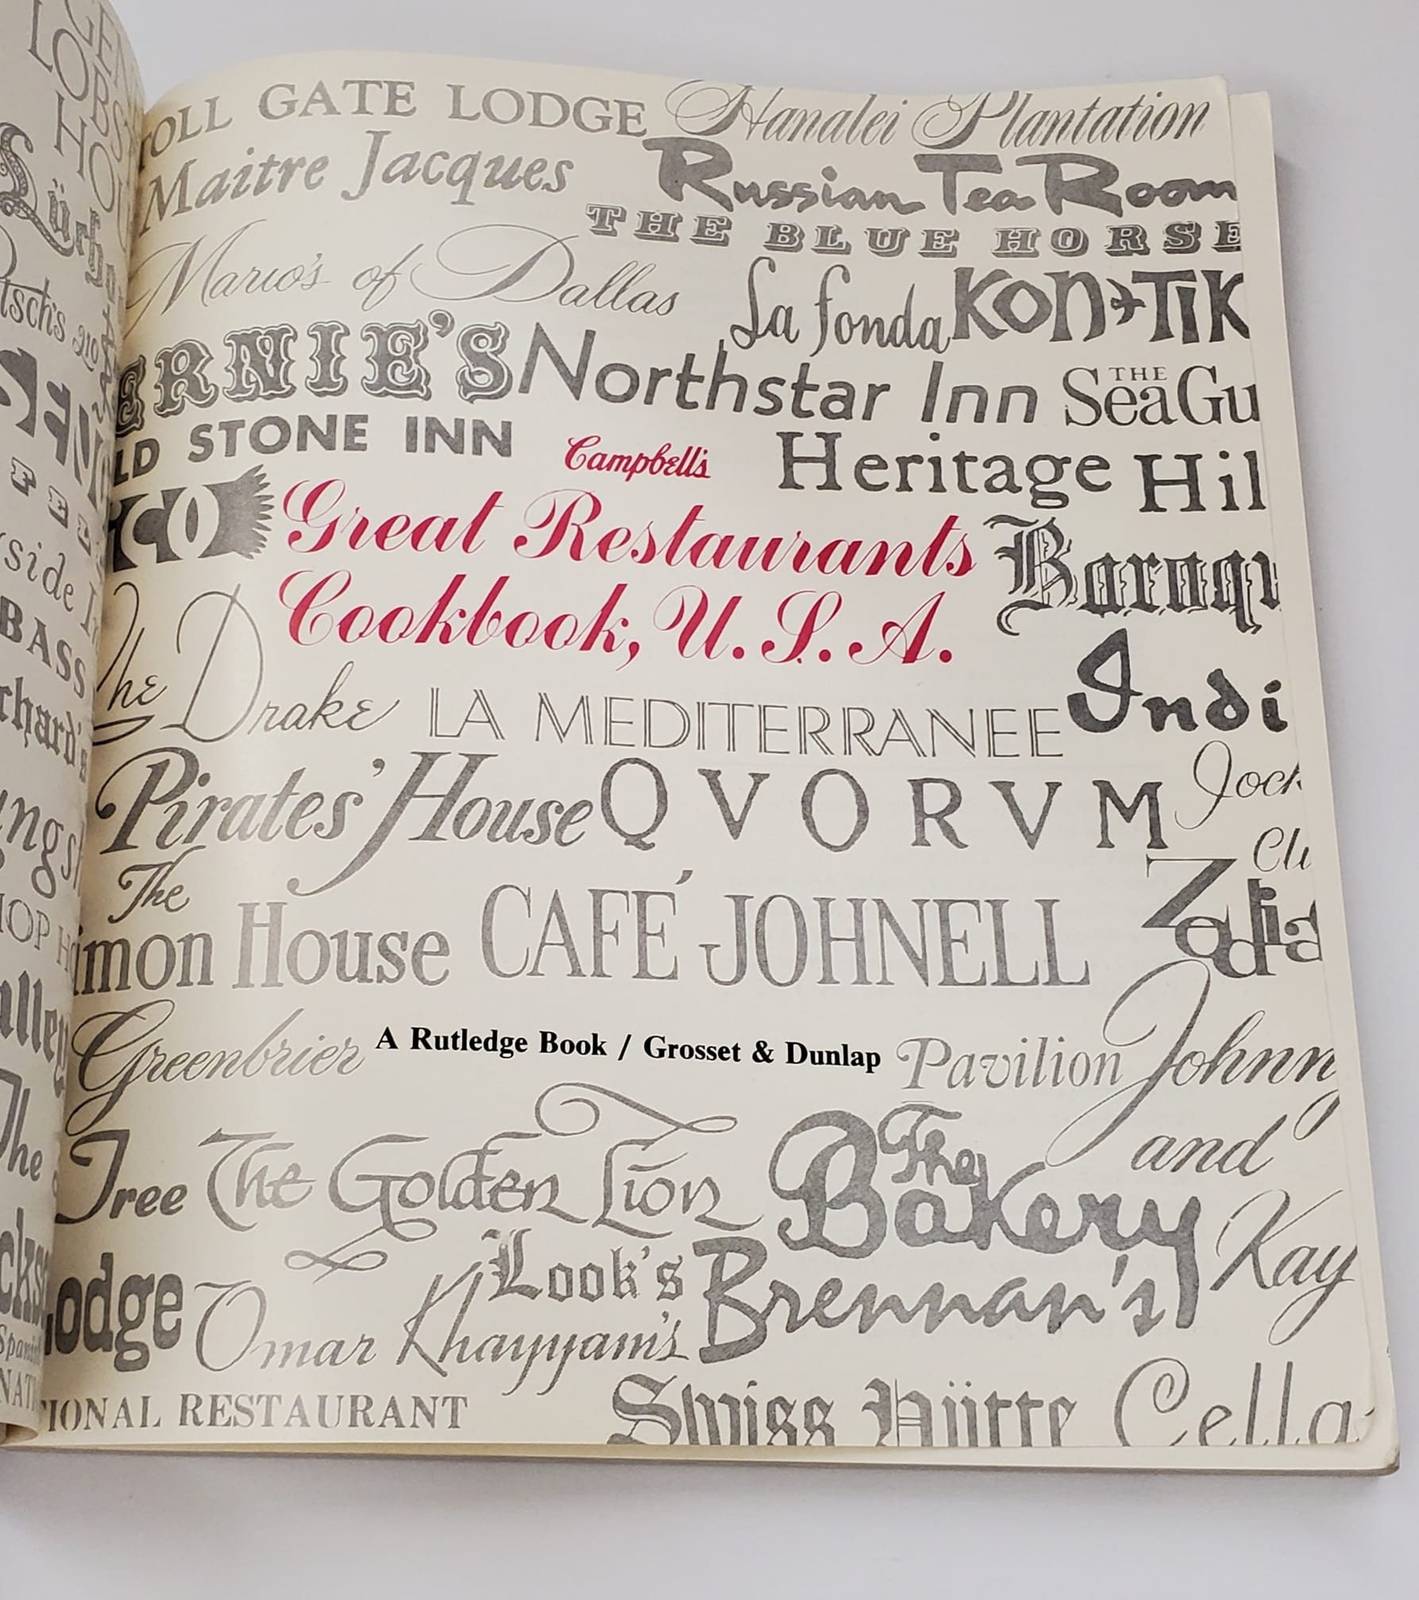 GEN
LOBS
HO
TOLL GATE LODGE Hanalei Plantation
Maitre Jacques Russian Tea Room
THE BLUE HORSE
Mario's of Dallas La fonda KON-TIK
ERNIE'S Northstar Inn THE Sea Gu
LD STONE INN Campbell's Heritage Hil
CO Great Restaurants Baroqu
Cookbook, U.S.A.
The Drake LA MEDITERRANEE Indi
Pirates' House QVORVM Jock
Clu
The Zodia
imon House CAFÉ JOHNELL
Greenbrier A Rutledge Book / Grosset & Dunlap Pavilion Johnny
and
Tree The Golden Lion The Bakery Kay
odge Omar Khayyam's Look's Brennan's
IONAL RESTAURANT Swiss Hütte Cella
side In
BASS
chard's
ngsl
HOP H
alley
The
cks
Spanis
NATI